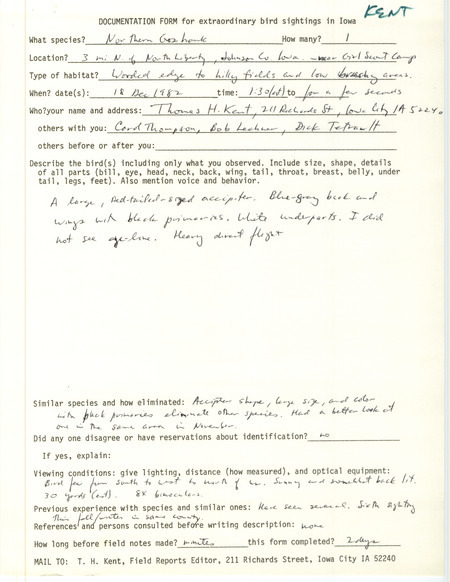 KENT
DOCUMENTATION FORM for extraordinary bird sightings in Iowa
What species? Northern Goshawk How many? 1
Location? 3 mi N of North Liberty, Johnson Co Iowa - near Girl Scout Camp
Type of habitat? Wooded edge to hilly fields and low brushy areas.
When? date(s): 18 Dec 1982 time: 1:30 to for a few seconds
Who?your name and address: Thomas H. Kent, 211 Richards St, Iowa City IA 52240
others with you: Carol Thompson, Bob Lechner, Dick Tetrault
others before or after you:
Describe the bird(s) including only what you observed. Include size, shape, details
of all parts (bill, eye, head, neck, back, wing, tail, throat, breast, belly, under
tail, legs, feet). Also mention voice and behavior.
A large, Red-tailed-sized accipiter. Blue-gray back and
wings with black primaries. White underparts. I did
not see eye-line. Heavy direct flight
Similar species and how eliminated: Accipiter shape, large size, and color
with black primaries eliminate other species. Had a better look at
one in the same area in November.
Did any one disagree or have reservations about identification? no
If yes, explain:
Viewing conditions: give lighting, distance (how measured), and optical equipment:
Bird flew from south to west to north of us. Sunny and somewhat back lit.
30 yards (est). 8X binoculars.
Previous experience with species and similar ones: Have seen several. Sixth sighting
this fall/winter in same county.
References and persons consulted before writing description: none
How long before field notes made? minutes this form completed? 2 days
MAIL TO: T. H. Kent, Field Reports Editor, 211 Richards Street, Iowa City IA 52240